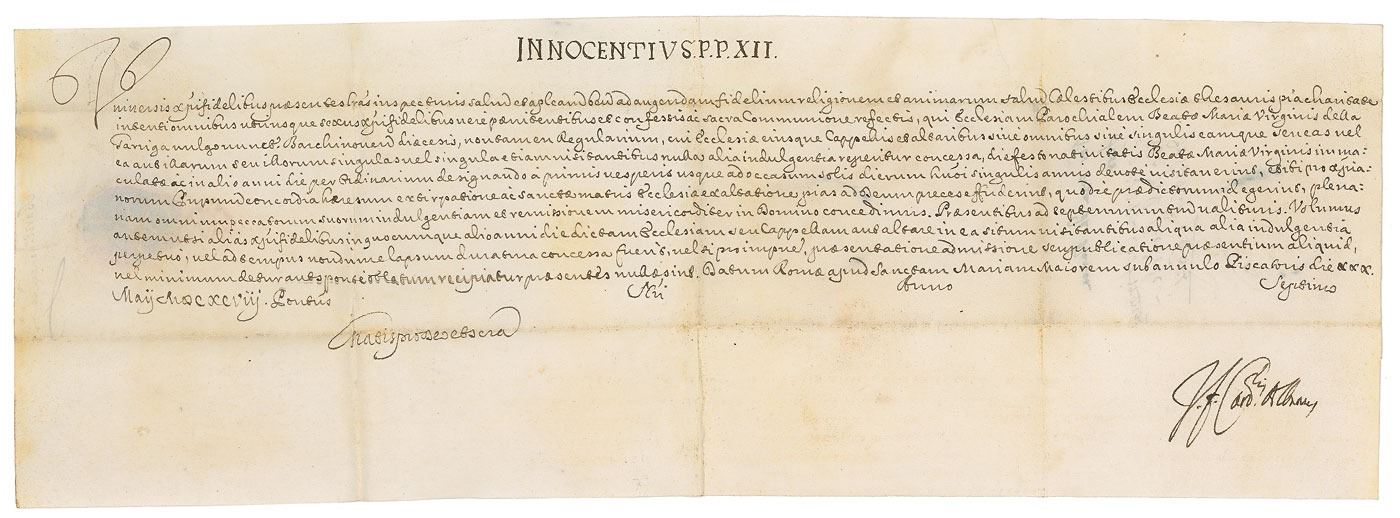 INNOCENTIVS.P.P.XII.
Universis Xpifidelibus præsentes lras inspecturis salutem et aplicam ben. ad augendam fidelium religionem et animarum salutem Cælestibus Ecclesiæ thesauris pia charitate
intenti omnibus utriusque sexus Xpifidelibus vere pænitentibus et confessis ac sacra Communione refectis, qui Ecclesiam Parochialem Beatæ Mariæ Virginis della
Garriga vulgo nunct. Barchinonen diæcesis, non tamen Regularium, cui Ecclesiæ eiusque Cappellis et altaribus sive omnibus sive singulis eamque seu eas vel
ea aut illarum seu illorum singulas vel singula etiam visitantibus nulla alia indulgentia reperitur concessa, die festo nativitatis Beatæ Mariæ Virginis imma-
culatæ ac in alio anni die per Ordinarium designando a primis vesperis usque ad occasum solis dierum huiusi singulis annis devote visitaverint, et ibi pro xpiā-
norum Prpum concordia hæresum extirpatione ac sanctæ matris Ecclesiæ exaltatione pias ad Deum preces effuderint, quo die prædictorum id egerint, plena-
riam omnium peccatorum suorum indulgentiam et remissionem misericorditer in Domino concedimus. Præsentibus ad septennium tm valituris. Volumus
autem ut si alias Xpifidelibus in quocumque alio anni die dictam Ecclesiam seu Cappellam aut altare in ea situm visitantibus aliqua alia indulgentia
perpetuo, vel ad tempus nondum elapsum duratura concessa fuerit, vel si pro impne, præsentatione admissione seu publicatione præsentium aliquid,
vel minimum detur aut sponte oblatum recipiatur præsentes nullæ sint. Datum Romæ apud Sanctam Mariam Maiorem sub annulo Piscatoris die xxx.
Maij MDCXCVIIJ. Pontus Nri Anno Septimo
Gratis pro Deo et scra
J. F. Cardlis Albanus